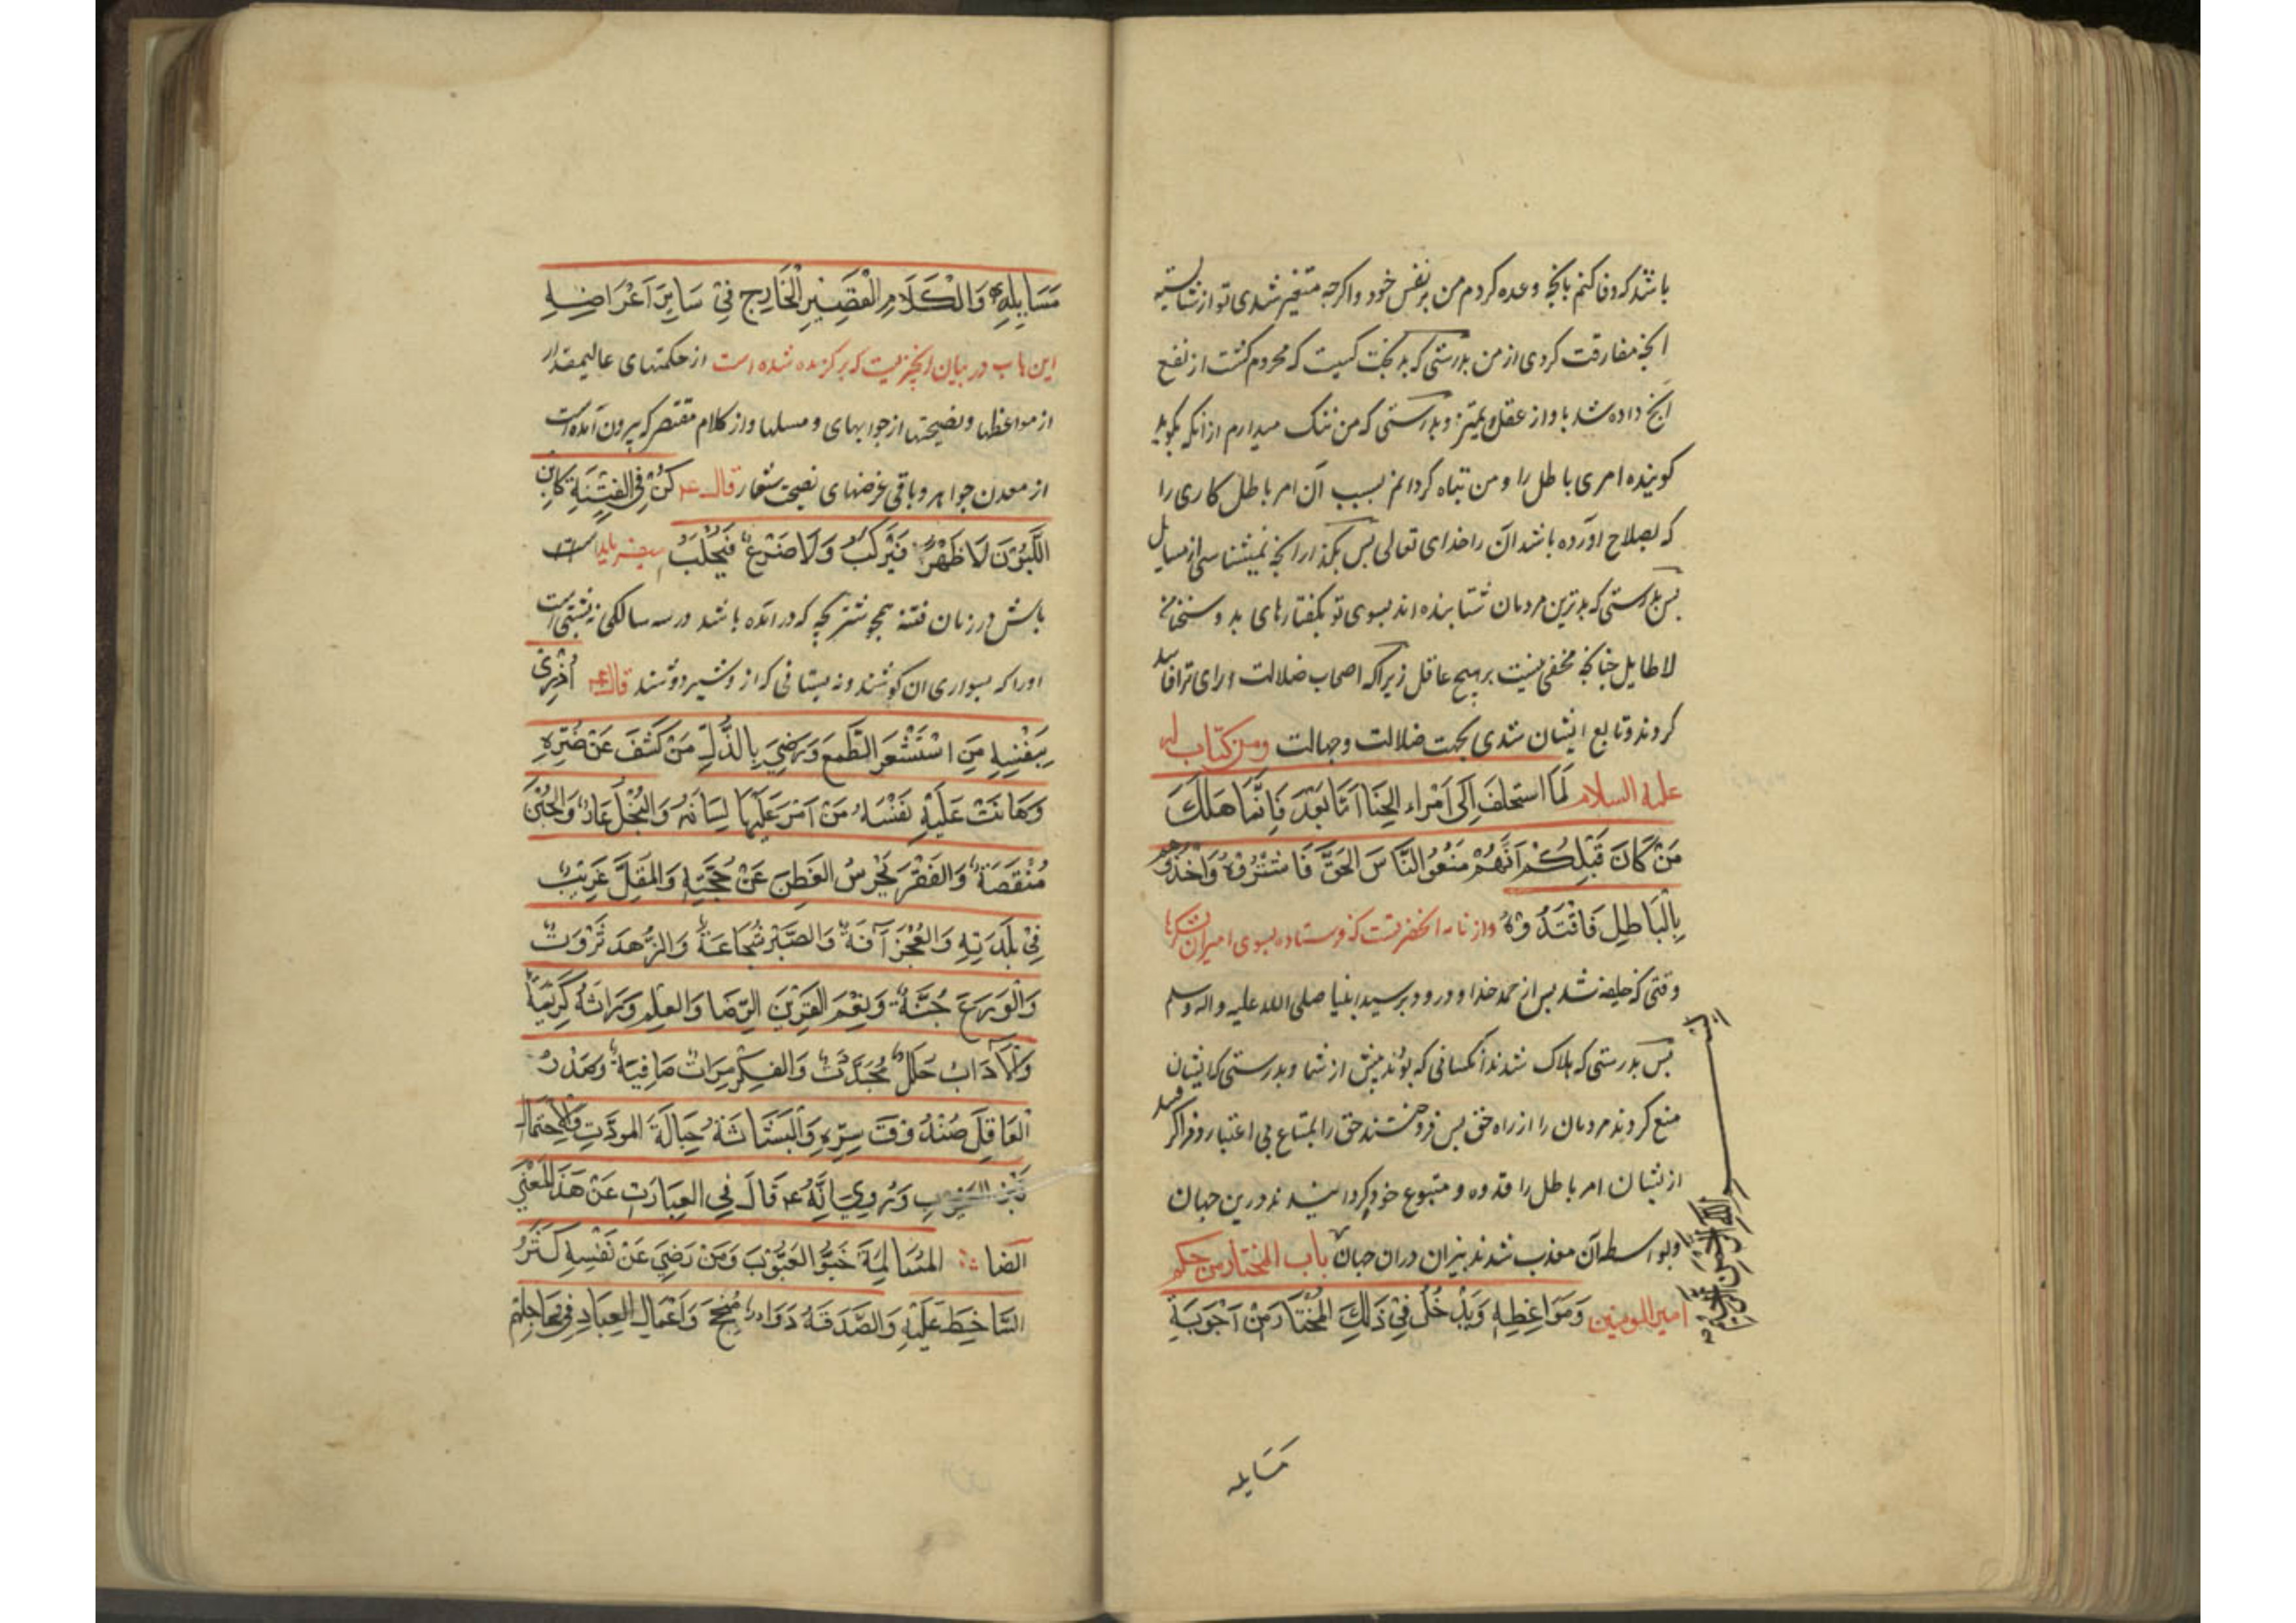 باشد که وفا کنم بانچه وعده کردم من بر نفس خود و اکرچه متغیر شدی تو از شایسته
انچه مفارقت کردی از من بدرستی که بدبخت کسیت که محروم کشت از نفع
انچ داده شد باو از عقل و تمیز و بدرستی که من ننک میدارم از انکه بکوید
کوینده امری باطل را و من تباه کردانم بسبب آن امر باطل کاری را
که بصلاح اورده باشد آن را خدای تعالی بس بکذار انچه نمیشناسی از مسایل
بس بدرستی که بدترین مردمان شتابنده اند بسوی تو بکفتارهای بد و سخنان
لاطایل چنانچه مخفی نیست بر هیچ عاقل زیراکه اصحاب ضلالت و رای ترا فاسد
کردند و تابع ایشان شدی بجهت ضلالت و جهالت ومن کتاب له
علیه السلام لَمَا استحلفَ اِلَی اَمْراء الجَنَا اَمَّا بَعْدَ فَاِنَّمَا هَلَكَ
مَنْ كَانَ قَبْلِكُمْ اَنَّهُمْ مَنَعُوْا النَّاسَ الحَقَّ فَاشْتَرُوْهُ وَاَخَذُوْهُمْ
بِالْبَاطِلِ فَاقْتَدُوْهُ واز نامه انحضرتست که فرستاده بسوی امیران لشکرها
وقتی که خلیفه شد بس از حمد خدا و درود بر سید انبیا صلی الله علیه و اله وسلم
بس بدرستی که هلاک شدند انکسانی که بودند پیش از شما و بدرستی که ایشان
منع کردند مردمان را از راه حق بس فروختند حق را بمتاع بی اعتبار و فرا کرفتند
از ایشان امر باطل را قدوه و متبوع خود کردانیدند درین جهان
و بواسطه آن معذب شدند بنیران دران جهان باب المختار من حكم
امیر المومنین وَمَوَاعِظِهِ وَيَدْخُلُ فِيْ ذَلِكَ المُخْتَارُ مَنْ اَجْوَبَةِ
مَسَایله
مَسَایِلِهِ وَالْكَلَامِ الْقَصِيْرِ الْخَارِجِ فِيْ سَايِرَ اَغْرَاضِهِ
این باب در بیان انچیزیست که برکزیده شده است از حکمتهای عالیمقدار
از مواعظها و نصیحتها از جوابهای و مسلها و از کلام مقتصر که بیرون آمده است
از معدن جواهر و باقی غرضهای نصیحت شعار قال ع كُنْ فِي الْفِتْنَةِ كَابْنِ
اللَّبُوْنَ لَا ظَهْرٌ فَيَرْكَبُ وَلَا ضَرْعٌ فَيُحْلَبُ
باش در زمان فتنه همچو شتر بچه که در امده باشد در سه سالکی نه پشتی است
اورا که بسواری ان کوشند و نه پستانی که از و شیر دوشند قال ع اُزْرِيَ
بِنَفْسِهِ مَنِ اسْتَشْعَرَ الطَّمَعَ وَرَضِيَ بِالذُّلِّ مَنْ كَشَفَ عَنْ ضُرِّهِ
وَهَانَتْ عَلَيْهِ نَفْسَهُ مَنْ اَمَرَ عَلَيْهَا لِسَانَهُ وَالبُخْلُ عَارٌ وَالجُبْنَ
مُنْقَصَةٌ وَالفَقْرَ يَخْرِسُ الفَطِنَ عَنْ حُجَّتِهِ وَالمُقِلَّ غَرِيْبٌ
فِيْ بَلْدَتِهِ وَالعُجْزَ آفَةٌ وَالصَّبْرَ شَجَاعَةٌ وَالزُّهدَ ثَرْوَتٌ
وَالْوَرَعَ جُنَّةٌ وَنِعْمَ القَرِيْنَ الرِّضَا وَالعِلِمِ وِرَاثَةٌ كَرِيْمَةٌ
وَالْآدَابُ حُلَلٌ مُجَدَّدَتٌ وَالفِكْرُ مِرَاتٌ صَافِيَةٌ وَصَدْرُ
العَاقِلَ صُنْدُوْقَ سِرِّهِ وَالْبَشَاشَةُ حِبَالَةَ المودَّتِ وَالْاِحْتِمَالُ
قَبْرُ العُيُوبِ وَرُوِيَ اِنَّهُ ع قَالَ فِي العِبَارَتِ عَنْ هَذَ المَعْنَي
ایضا المُسَالِمَةَ خَبَؤُ العَيُوْبَ وَمَنْ رَضِيَ عَنْ نَفْسِهِ كَثَرُ
السَّاخِطَ عَلَيْهِ وَالصَّدَقَةُ دَوَاءٌ مُنْجِحَ وَاَعْمَالِ العِبَادِ فِي عَاجِلِهِمْ